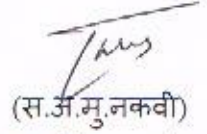 (स.अ.मु.नकवी)